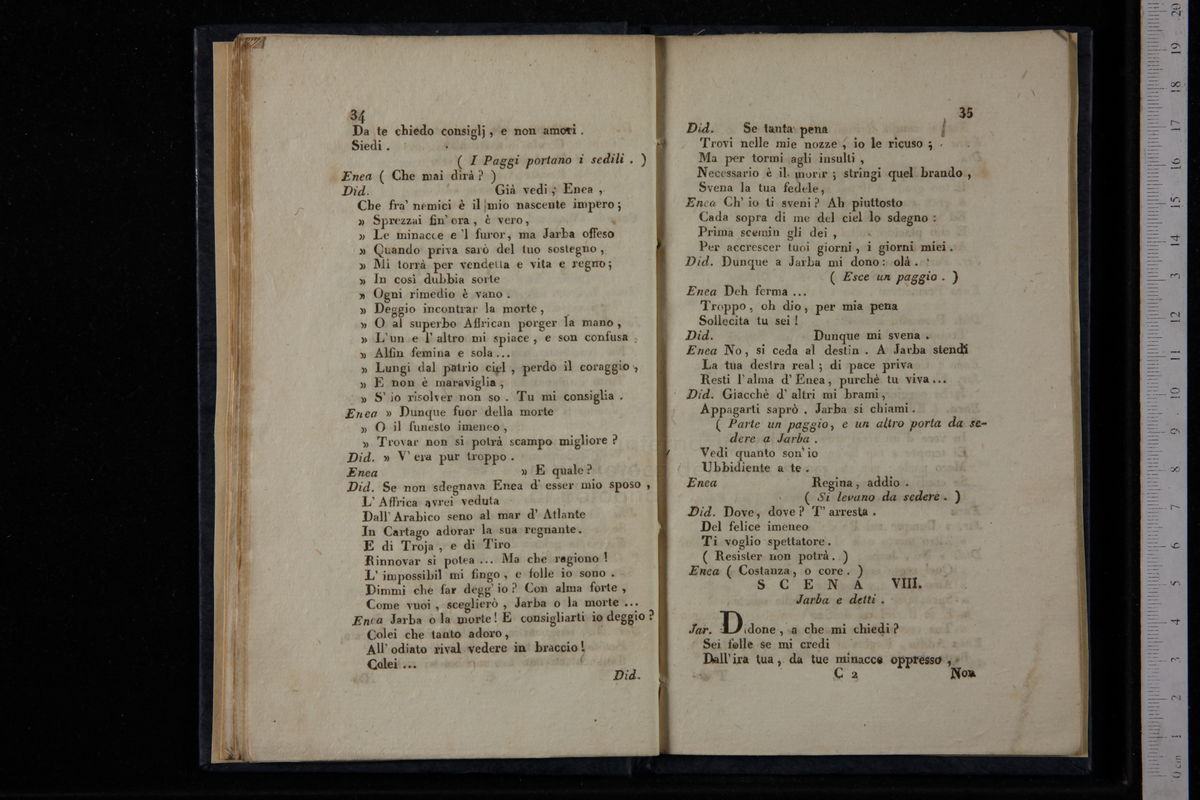 34
Da te chiedo consiglj , e non amori .
Siedi .
( I Paggi portano i sedili . )
Enea ( Che mai dirà ? )
Did. Già vedi , Enea ,
Che fra' nemici è il mio nascente impero ;
» Sprezzai fin' ora , è vero ,
» Le minacce e 'l furor , ma Jarba offeso
» Quando priva sarò del tuo sostegno ,
» Mi torrà per vendetta e vita e regno ;
» In così dubbia sorte
» Ogni rimedio è vano .
» Deggio incontrar la morte ,
» O al superbo Affrican porger la mano ,
» L' un e l' altro mi spiace , e son confusa .
» Alfin femina e sola ...
» Lungi dal patrio ciel , perdo il coraggio ,
» E non è maraviglia ,
» S' io risolver non so . Tu mi consiglia .
Enea » Dunque fuor della morte
» O il funesto imeneo ,
» Trovar non si potrà scampo migliore ?
Did. » V' era pur troppo .
Enea » E quale ?
Did. Se non sdegnava Enea d' esser mio sposo ,
L' Affrica avrei veduta
Dall' Arabico seno al mar d' Atlante
In Cartago adorar la sua regnante .
E di Troja , e di Tiro
Rinnovar si potea ... Ma che ragiono !
L' impossibil mi fingo , e folle io sono .
Dimmi che far degg' io ? Con alma forte ,
Come vuoi , sceglierò , Jarba o la morte ...
Enea Jarba o la morte ! E consigliarti io deggio ?
Colei che tanto adoro ,
All' odiato rival vedere in braccio !
Colei ...
Did.
35
Did. Se tanta pena
Trovi nelle mie nozze , io le ricuso ;
Ma per tormi agli insulti ,
Necessario è il morir ; stringi quel brando ,
Svena la tua fedele ,
Enea Ch' io ti sveni ? Ah piuttosto
Cada sopra di me del ciel lo sdegno :
Prima scemin gli dei ,
Per accrescer tuoi giorni , i giorni miei .
Did. Dunque a Jarba mi dono : olà .
( Esce un paggio . )
Enea Deh ferma ...
Troppo , oh dio , per mia pena
Sollecita tu sei !
Did. Dunque mi svena .
Enea No , si ceda al destin . A Jarba stendi
La tua destra real ; di pace priva
Resti l' alma d' Enea , purchè tu viva ...
Did. Giacchè d' altri mi brami ,
Appagarti saprò . Jarba si chiami .
( Parte un paggio , e un altro porta da se-
dere a Jarba .
Vedi quanto son' io
Ubbidiente a te .
Enea Regina , addio .
( Si levano da sedere . )
Did. Dove , dove ? T' arresta .
Del felice imeneo
Ti voglio spettatore .
( Resister non potrà . )
Enea ( Costanza , o core . )
SCENA VIII.
Jarba e detti .
Jar. Didone , a che mi chiedi ?
Sei folle se mi credi
Dall' ira tua , da tue minacce oppresso ,
C 2 Non